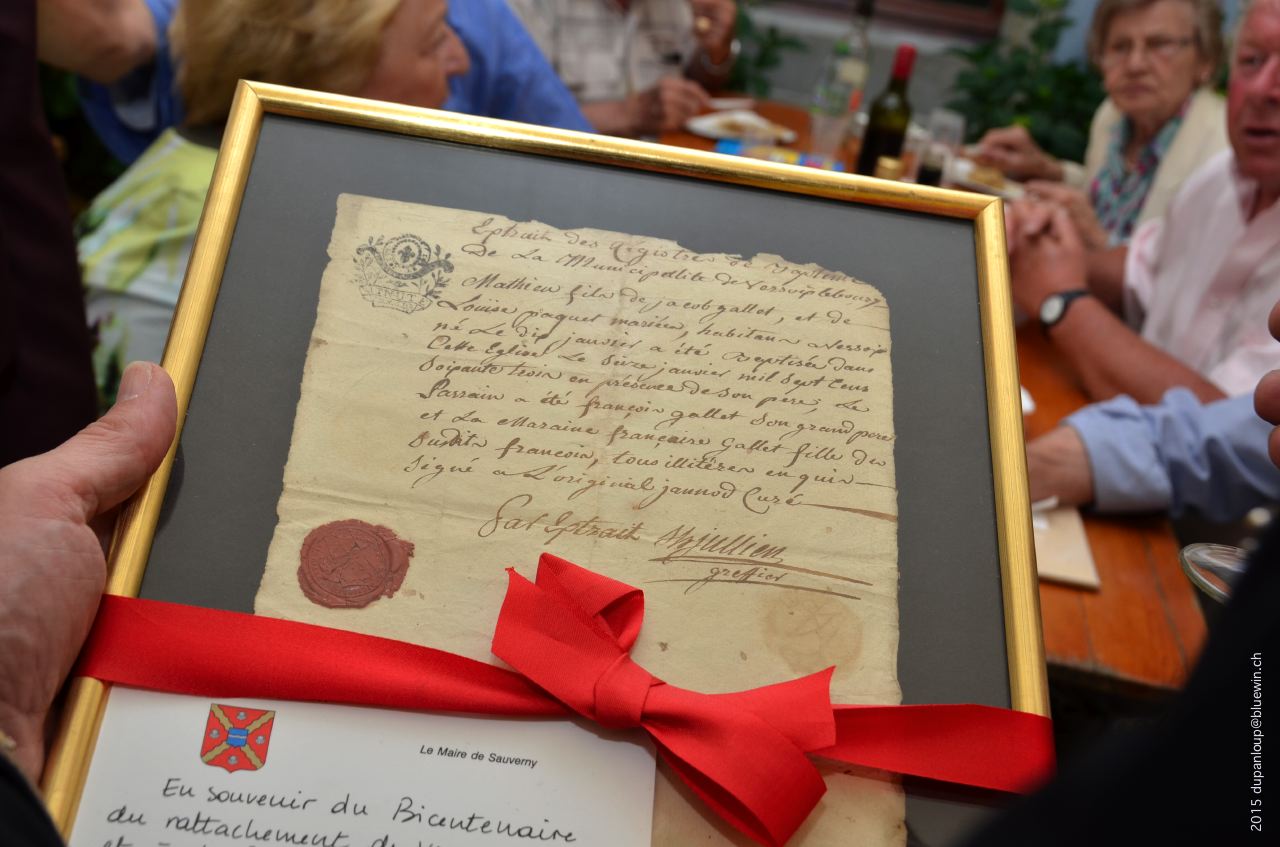 Extrait des Registres de Baptême
De La Municipalité de Versoix le bourg
Mathieu fils de jacob gallot, et de
Louise paquet mariés, habitans a Versoix
né Le dix janvier a été Baptisée dans
Cette Eglise Le Seize janvier mil Sept Cens
Soixante trois en présence de Son pere; Le
Parrain a été françois gallet Son grand pere
et La Maraine françoise gallet fille du
Susdit françois, tous illitérés enquis
Signé a L'original jannod Curé
Par Extrait
Jullien
greffier
MINUTE
Le Maire de Sauverny
En souvenir du Bicentenaire
du rattachement de
et
2015 dupanloup@bluewin.ch